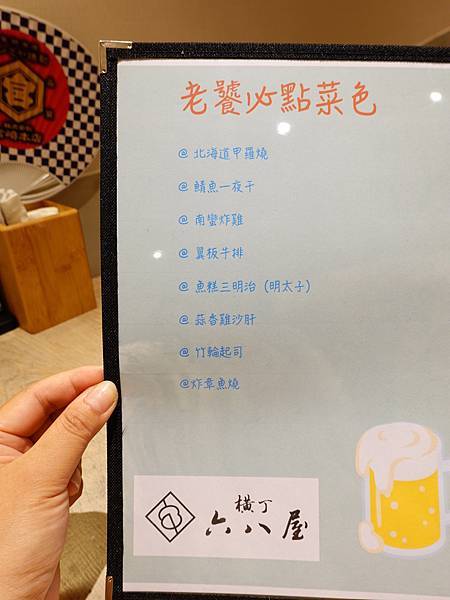 老饕必點菜色
@ 北海道甲羅燒
@ 鯖魚一夜干
@ 南蠻炸雞
@ 翼板牛排
@ 魚糕三明治（明太子）
@ 蒜香雞沙肝
@ 竹輪起司
@炸章魚燒
橫丁
六八屋